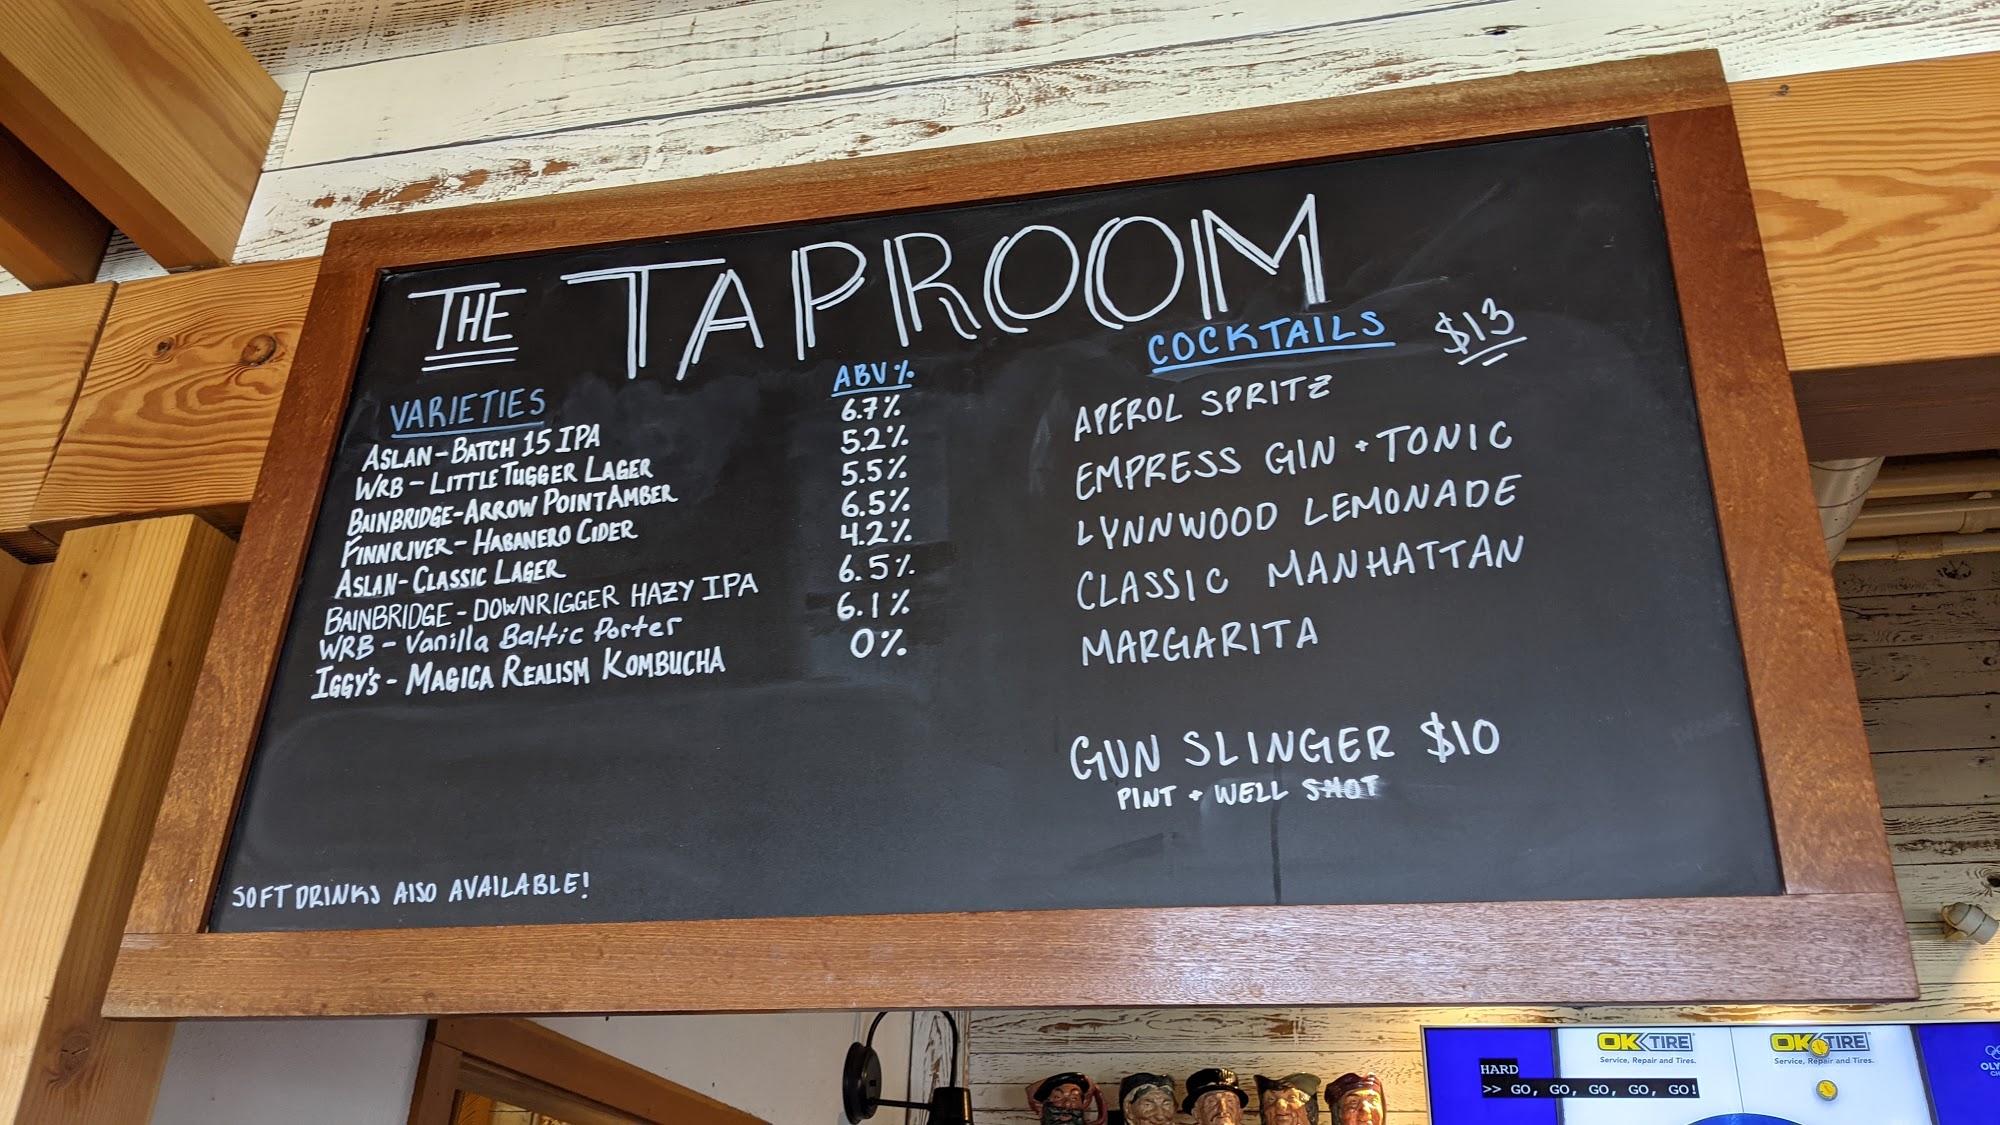 THE TAPROOM
VARIETIES
ABV %
ASLAN-BATCH 15 IPA 6.7%
WRB - LITTLE TUGGER LAGER 5.2%
BAINBRIDGE-ARROW POINT AMBER 5.5%
FINNRIVER - HABANERO CIDER 6.5%
ASLAN-CLASSIC LAGER 4.2%
BAINBRIDGE - DOWNRIGGER HAZY IPA 6.5%
WRB - Vanilla Baltic Porter 6.1%
IGGY'S - MAGICA REALISM KOMBUCHA 0%
SOFT DRINKS AlSO AVAILABLE!
COCKTAILS $13
APEROL SPRITZ
EMPRESS GIN + TONIC
LYNNWOOD LEMONADE
CLASSIC MANHATTAN
MARGARITA
GUN SLINGER $10
PINT + WELL SHOT
HARD
>> GO, GO, GO, GO, GO!
OK TIRE
Service, Repair and Tires.
OK TIRE
Service, Repair and Tires.